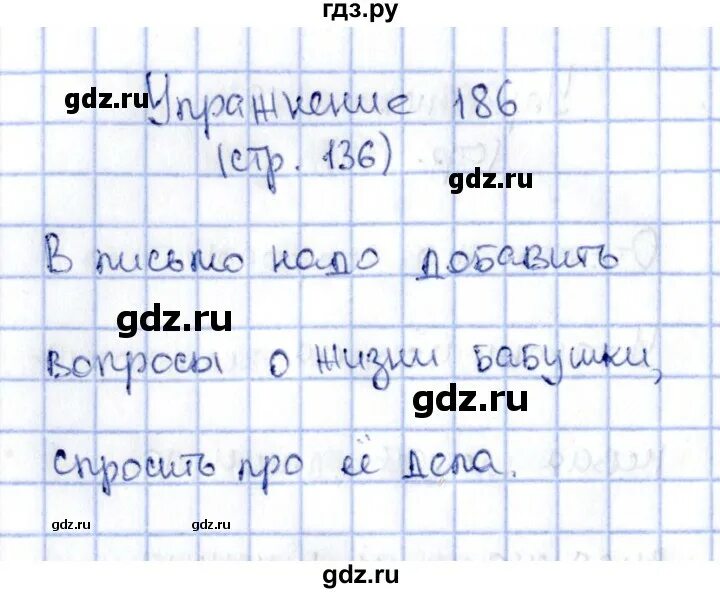 гдз.ру
gdz.ru
Упражнение 186
(стр. 136)
gdz.ru
В письмо надо добавить
gdz.ru
вопросы о жизни бабушки,
gdz.ru
спросить про её дела.
gdz.ru gdz.ru
gdz.ru